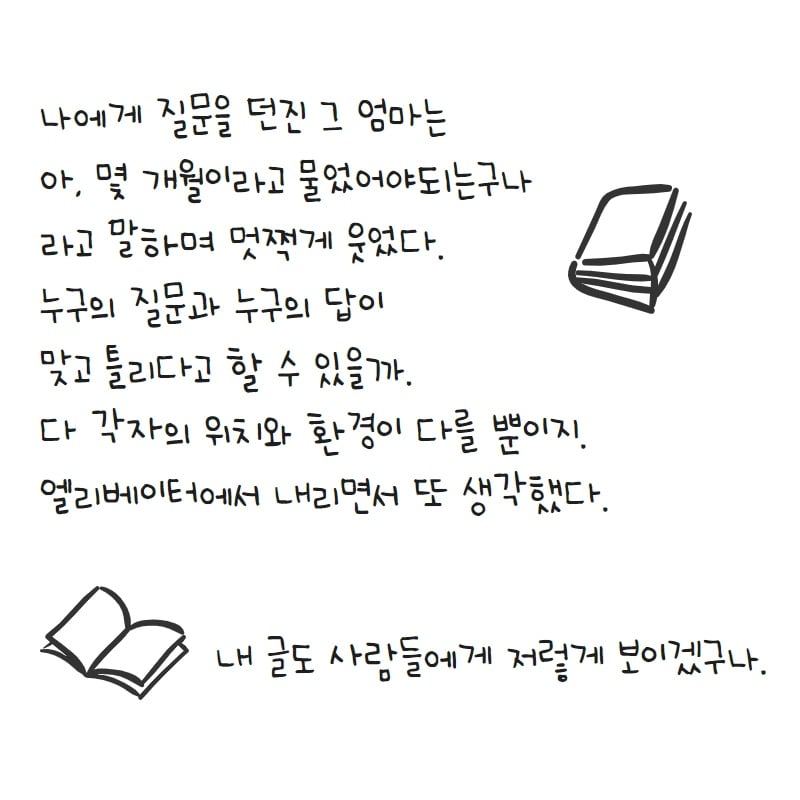 나에게 질문을 던진 그 엄마는
아, 몇 개월이라고 물었어야되는구나
라고 말하며 멋쩍게 웃었다.
누구의 질문과 누구의 답이
맞고 틀리다고 할 수 있을까.
다 각자의 위치와 환경이 다를 뿐이지.
엘리베이터에서 내리면서 또 생각했다.
내 글도 사람들에게 저렇게 보이겠구나.